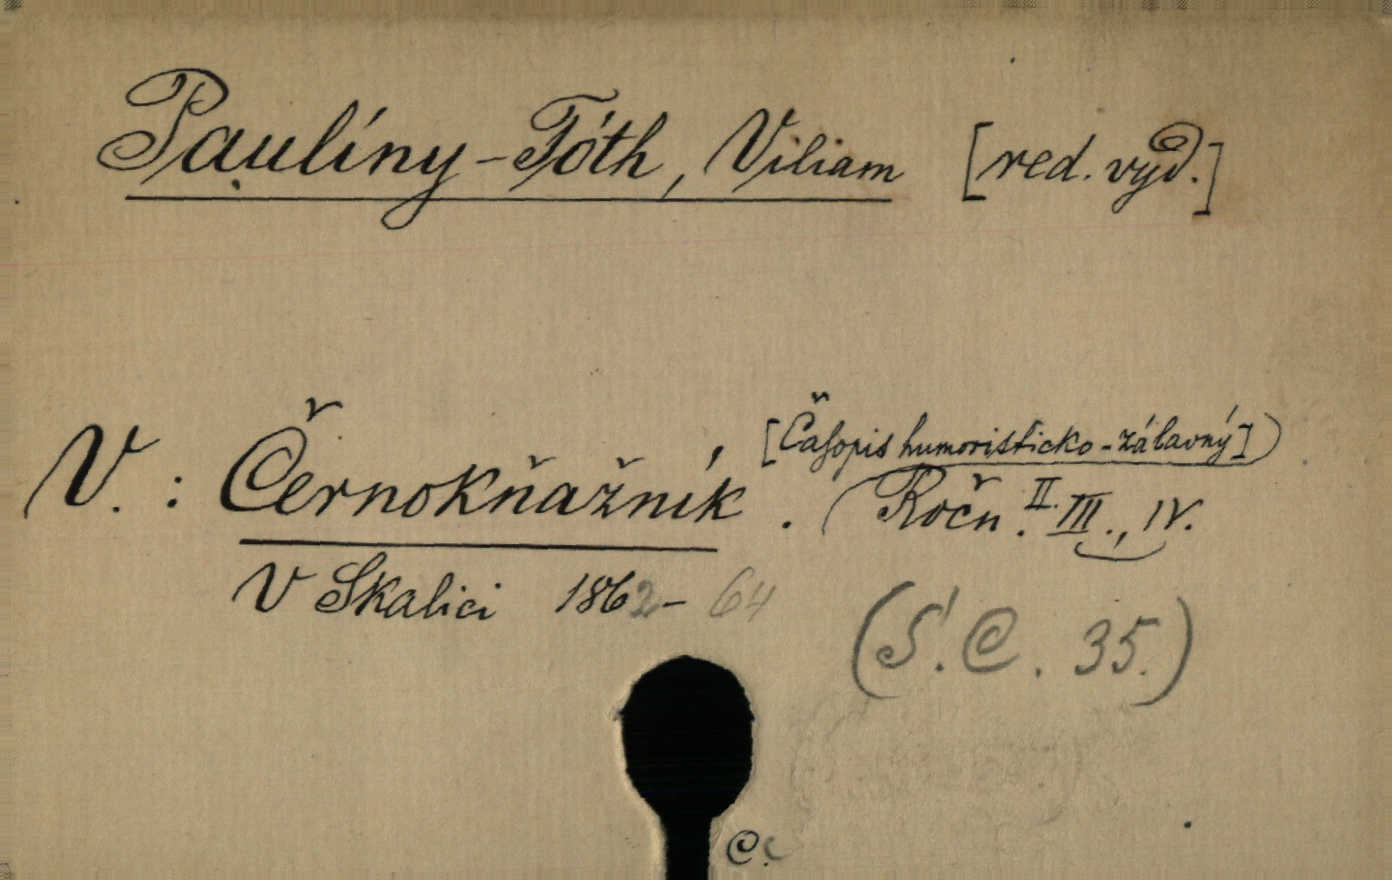 Paulíny-Tóth, Viliam [red. vyd.]
[Časopis humoristicko-zábavný]
V. : Černokňažník. Ročn. II. III., IV.
V Skalici 1862-64
(S. C. 35.)
C.